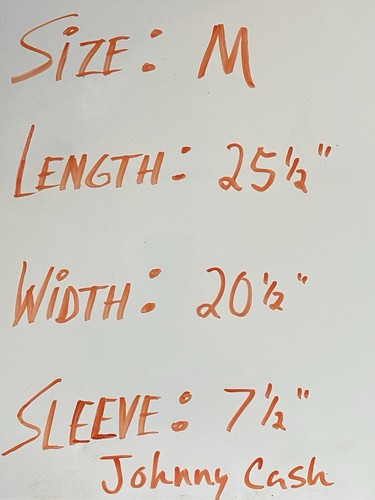 SIZE: M
LENGTH: 25 1/2"
WIDTH: 20 1/2"
SLEEVE: 7 1/2"
Johnny Cash